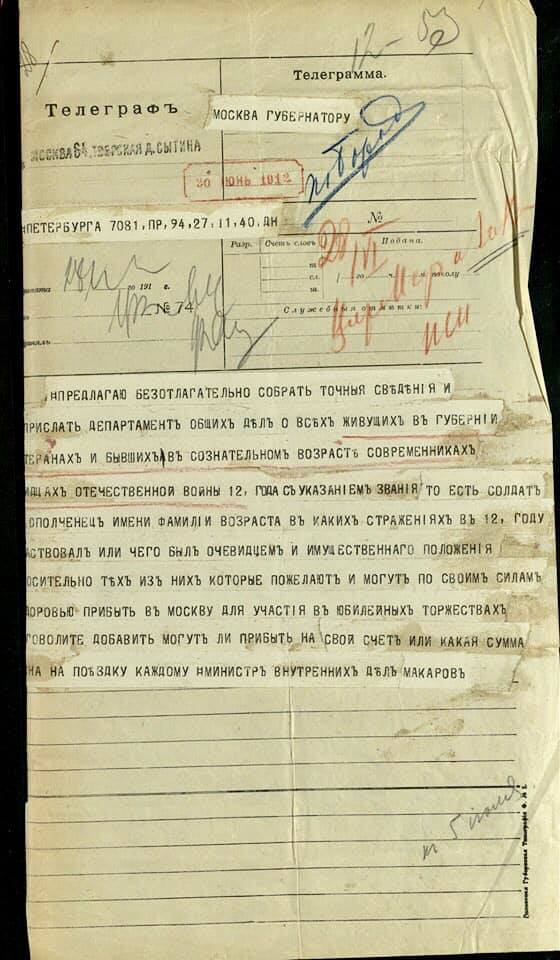 12-53
Телеграмма.
Телеграфъ
МОСКВА ГУБЕРНАТОРУ
МОСКВА 64, ТВЕРСКАЯ Д. СЫТИНА
по Город
20 ІЮНЬ 1912
ПЕТЕРБУРГА 7081, ПР, 94, 27, 11, 40, ДН
№
Разр. Счетъ словъ Подана.
28/VI
го 191 г.
сл.
№ 74
Служебныя отмѣтки:
#ПРЕДЛАГАЮ БЕЗОТЛАГАТЕЛЬНО СОБРАТЬ ТОЧНЫЯ СВѢДЕНІЯ И
ПРИСЛАТЬ ДЕПАРТАМЕНТ ОБЩИХЪ ДѢЛЪ О ВСѢХЪ ЖИВУЩИХЪ ВЪ ГУБЕРНІИ
ТЕРАНАХЪ И БЫВШИХЪ ВЪ СОЗНАТЕЛЬНОМЪ ВОЗРАСТѢ СОВРЕМЕННИКАХЪ
ИДЦАХЪ ОТЕЧЕСТВЕННОЙ ВОЙНЫ 12, ГОДА СЪ УКАЗАНІЕМЪ ЗВАНІЯ ТО ЕСТЬ СОЛДАТЪ
ОПОЛЧЕНЕЦЪ ИМЕНИ ФАМИЛІИ ВОЗРАСТА ВЪ КАКИХЪ СТРАЖЕНІЯХЪ ВЪ 12, ГОДУ
АСТВОВАЛЪ ИЛИ ЧЕГО БЫЛЪ ОЧЕВИДЦЕМЪ И ИМУЩЕСТВЕННАГО ПОЛОЖЕНІЯ
ОСИТЕЛЬНО ТѢХЪ ИЗЪ НИХЪ КОТОРЫЕ ПОЖЕЛАЮТЪ И МОГУТЪ ПО СВОИМЪ СИЛАМЪ
ДОРОВЬЮ ПРИБЫТЬ ВЪ МОСКВУ ДЛЯ УЧАСТІЯ ВЪ ЮБИЛЕЙНЫХЪ ТОРЖЕСТВАХЪ
ГОВОЛИТЕ ДОБАВИТЬ МОГУТЪ ЛИ ПРИБЫТЬ НА СВОЙ СЧЕТЪ ИЛИ КАКАЯ СУММА
НА НА ПОѢЗДКУ КАЖДОМУ #МИНИСТРЪ ВНУТРЕННИХЪ ДѢЛЪ МАКАРОВЪ
к 5 іюля